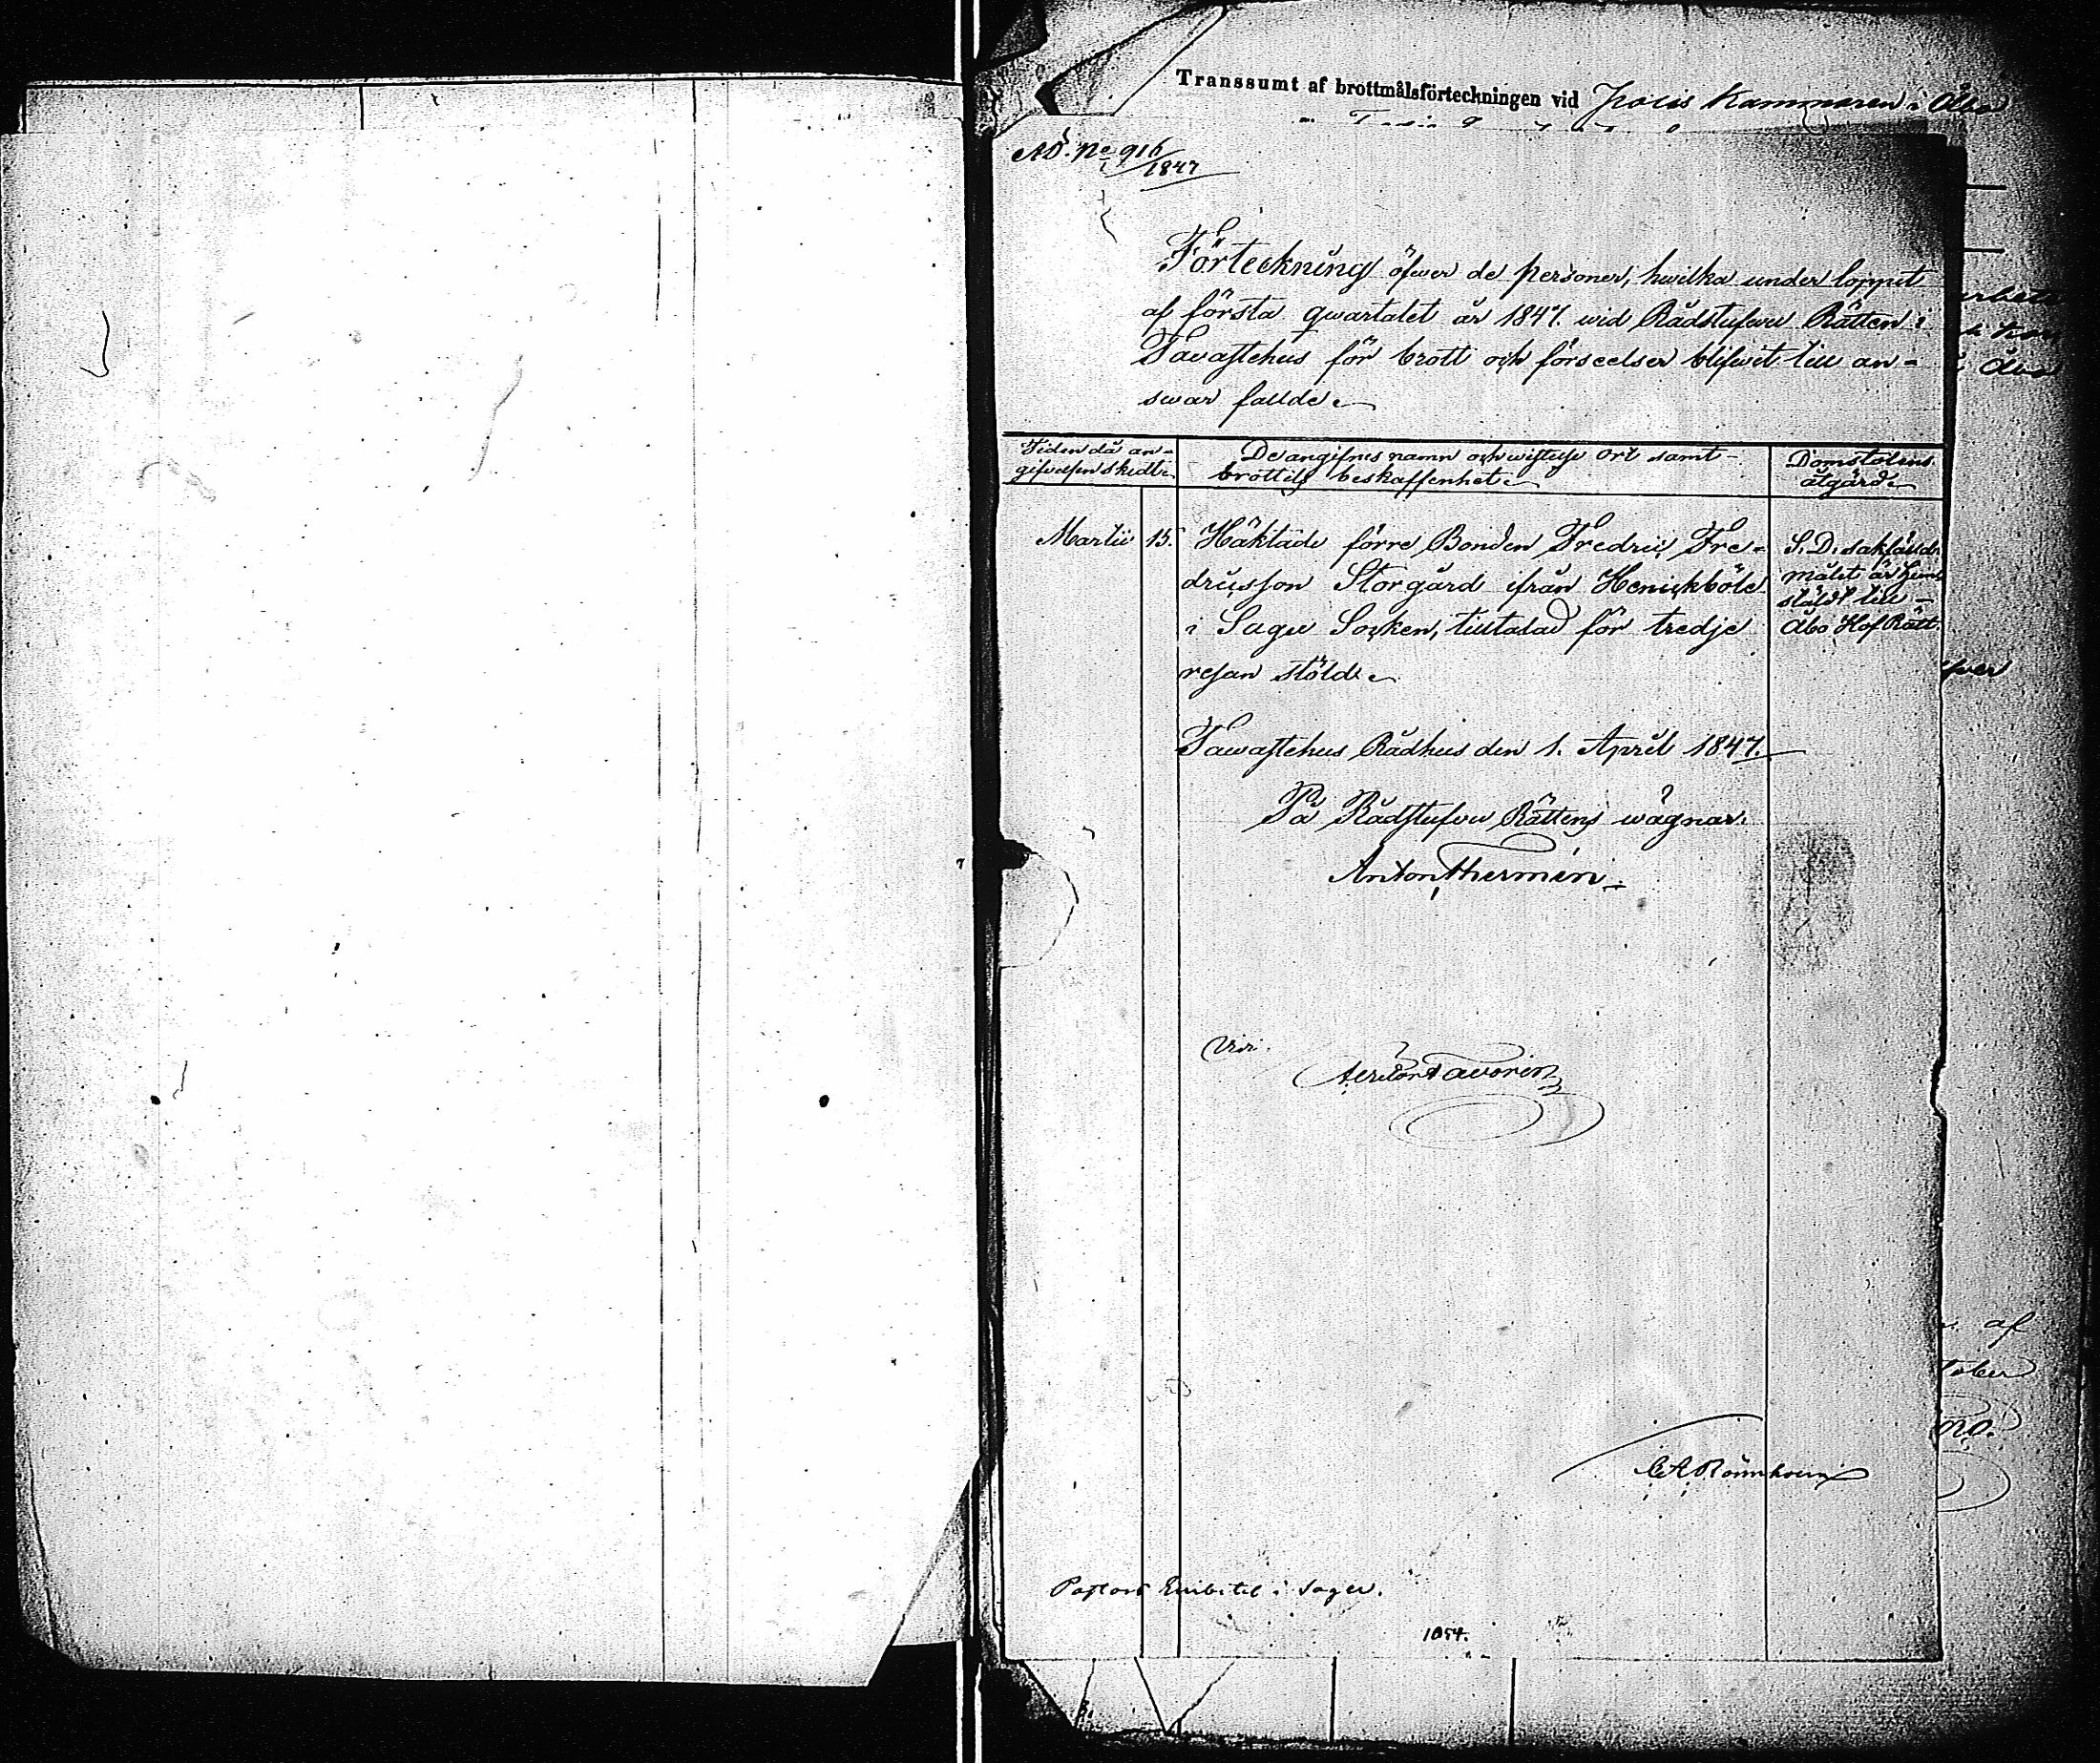 Transsumt af brottmålsförteckningen vid Polis Kammaren i Åbo
AD. No 916/1847
Förteckning öfwer de personer, hwilka under loppet
af första qwartalet år 1847. wid Rådstufwu Rätten i
Tavastehus för brott och förseelser blifwit till an-
swar fällde.
Tiden då an-
gifwelsen skedt.
De angifnes namn och wistelse ort samt
brottets beskaffenhet.
Domstolens
åtgärd.
Martii 15. Häktade förre Bonden Fredric Fre-
dricsson Storgård ifrån Henickböle
i Sagu Socken, tilltalad för tredje
resan stöld.
S. D. sakfälld.
målet är hem-
stäldt till
Åbo HofRätt.
Tawastehus Rådhus den 1. April 1847.
På Rådstufwu Rättens wägnar.
Anton Thermén
Vidi.
C A Rönnholm
Pastors Embetet i Sagu.
1054.
öfwer
af
tober